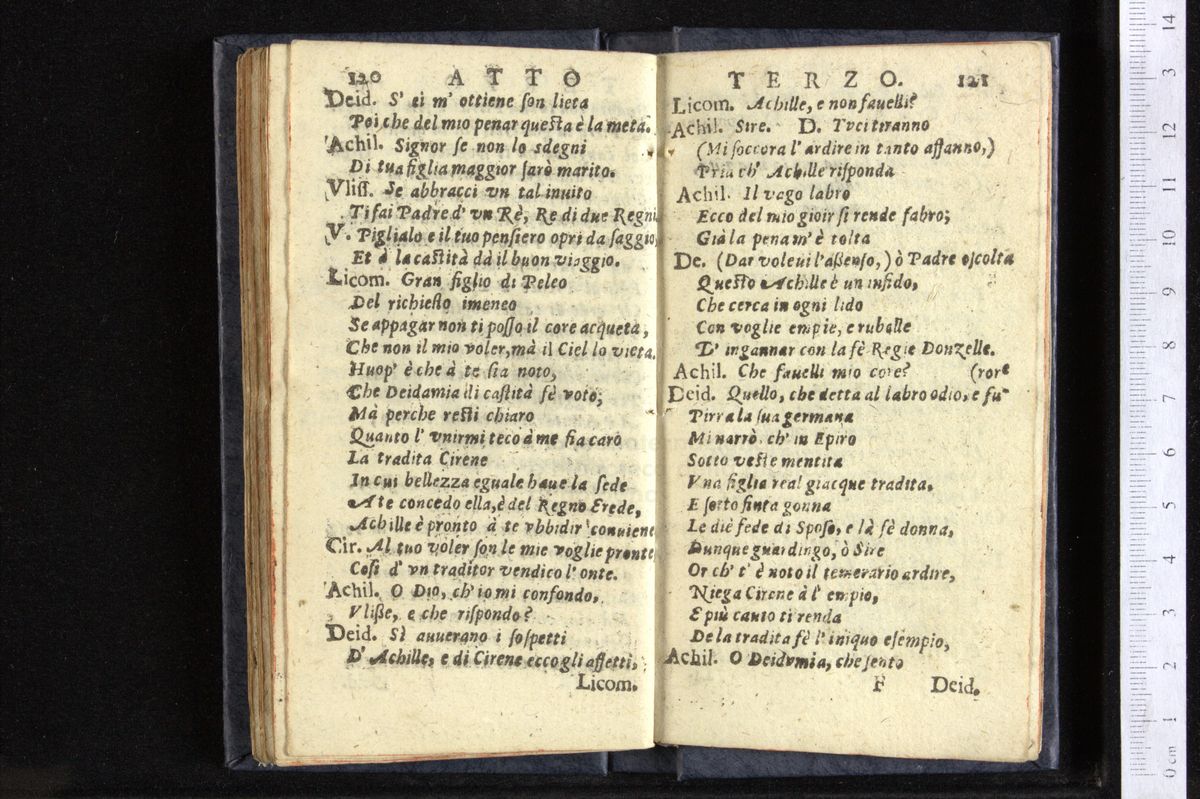 120 ATTO
Deid. S' ei m' ottiene ſon lieta
Poi che del mio penar queſta è la meta.
Achil. Signor ſe non lo sdegni
Di tua figlia maggior ſarò marito.
Vliſſ. Se abbracci vn tal inuito
Ti fai Padre d' vn Rè, Re di due Regni
V. Piglialo e il tuo penſiero opri da ſaggio,
Et à la caſtità dà il buon viaggio.
Licom. Gran figlio di Peleo
Del richieſto imeneo
Se appagar non ti poſſo il core acqueta,
Che non il mio voler, mà il Ciel lo vieta.
Huop' è che à te ſia noto,
Che Deidamia di caſtità fè voto;
Mà perche reſti chiaro
Quanto l' vnirmi teco à me ſia caro
La tradita Cirene
In cui bellezza eguale haue la ſede
A te concedo ella, è del Regno Erede,
Achille è pronto à te vbbidir conuiene
Cir. Al tuo voler ſon le mie voglie pronte
Coſi d' vn traditor vendico l' onte.
Achil. O Dio, ch' io mi confondo,
Vliße, e che riſpondo?
Deid. Sì auuerano i ſoſpetti
D' Achille, e di Cirene ecco gli affetti,
Licom.
TERZO. 121
Licom. Achille, e non fauelli?
Achil. Sire. D. Tvci tiranno
(Mi ſoccora l' ardire in tanto affanno,)
Pria ch' Achille riſponda
Achil. Il vago labro
Ecco del mio gioir ſi rende fabro;
Già la pena m' è tolta
De. (Dar voleui l' aßenſo,) ò Padre aſcolta
Queſto Achille è un infido,
Che cerca in ogni lido
Con voglie empie, e rubelle
L' ingannar con la fè Regie Donzelle.
Achil. Che fauelli mio core? (rore
Deid. Quello, che detta al labro odio, e fu-
Pirra la ſua germana
Mi narrò, ch' in Epiro
Sotto veſte mentita
Vna figlia real giacque tradita,
E ſotto finta gonna
Le diè fede di Spoſo, e là fè donna,
Dunque guardingo, ò Sire
Or ch' t' è noto il temerario ardire,
Niega Cirene à l' empio,
E più cauto ti renda
De la tradita fè l' iniquo eſempio,
Achil. O Deidvmia, che ſento
F Deid.
14
13
12
11
10
9
8
7
6
5
4
3
2
1
0 cm